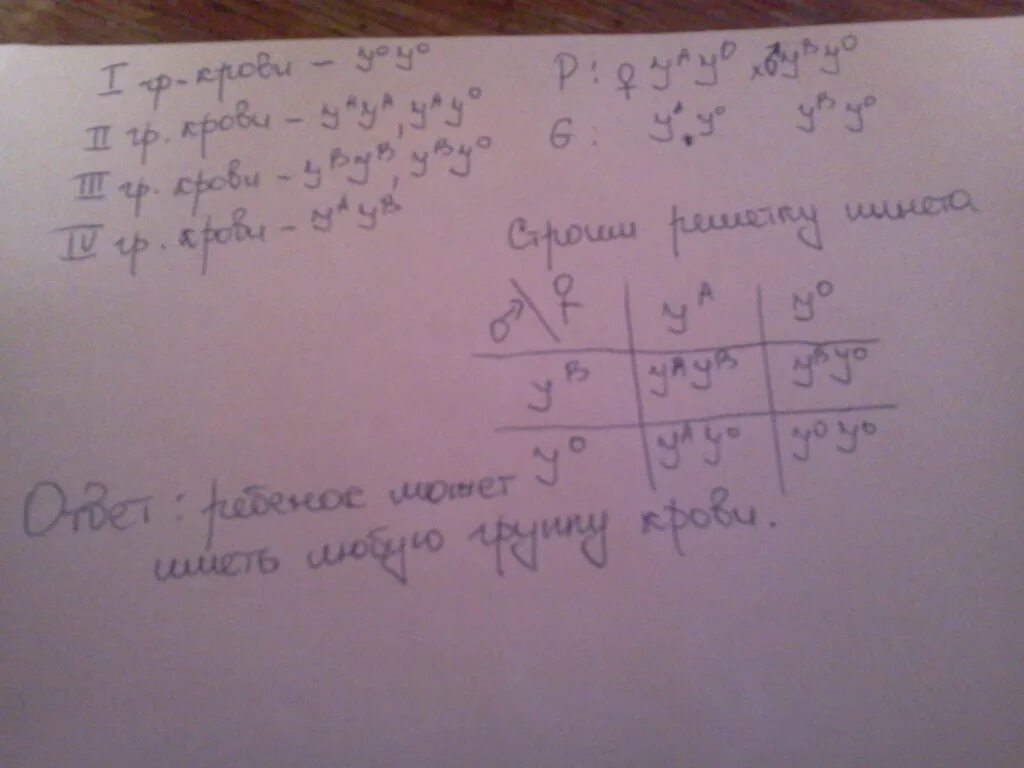 I гр. крови - y⁰y⁰
II гр. крови - yᴬyᴬ, yᴬy⁰
III гр. крови - yᴮyᴮ, yᴮy⁰
IV гр. крови - yᴬyᴮ
P: ♀ yᴬy⁰ x ♂yᴮy⁰
G: yᴬ. y⁰ yᴮ y⁰
Строим решетку пинета
♂ \ ♀ yᴬ y⁰
yᴮ yᴬyᴮ yᴮy⁰
y⁰ yᴬy⁰ y⁰y⁰
Ответ: ребенок может
иметь любую группу крови.